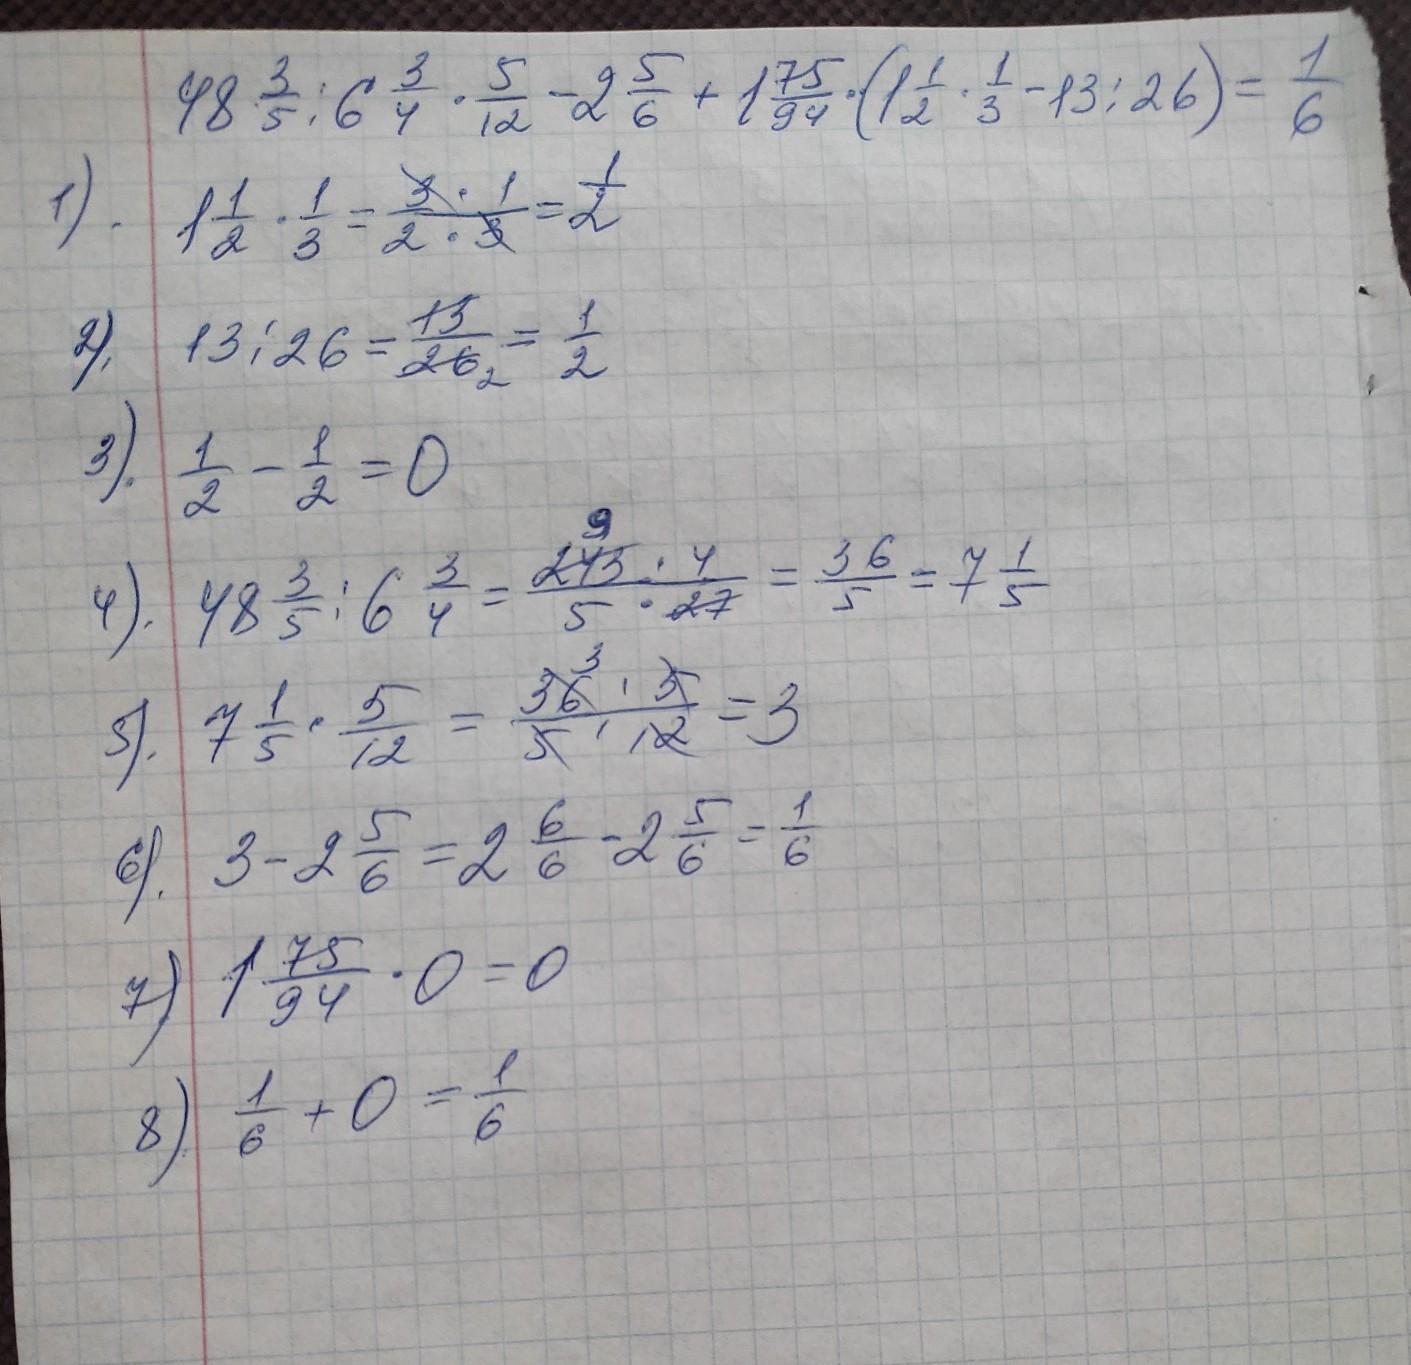 48 3/5 : 6 3/4 · 5/12 - 2 5/6 + 1 75/94 · (1 1/2 · 1/3 - 13 : 26) = 1/6
1). 1 1/2 · 1/3 = 3 · 1 / 2 · 3 = 1/2
2). 13 : 26 = 13/26 2 = 1/2
3). 1/2 - 1/2 = 0
4). 48 3/5 : 6 3/4 = 9 243 · 4 / 5 · 27 = 36/5 = 7 1/5
5). 7 1/5 · 5/12 = 36 3 · 5 / 5 · 12 = 3
6). 3 - 2 5/6 = 2 6/6 - 2 5/6 = 1/6
7) 1 75/94 · 0 = 0
8) 1/6 + 0 = 1/6